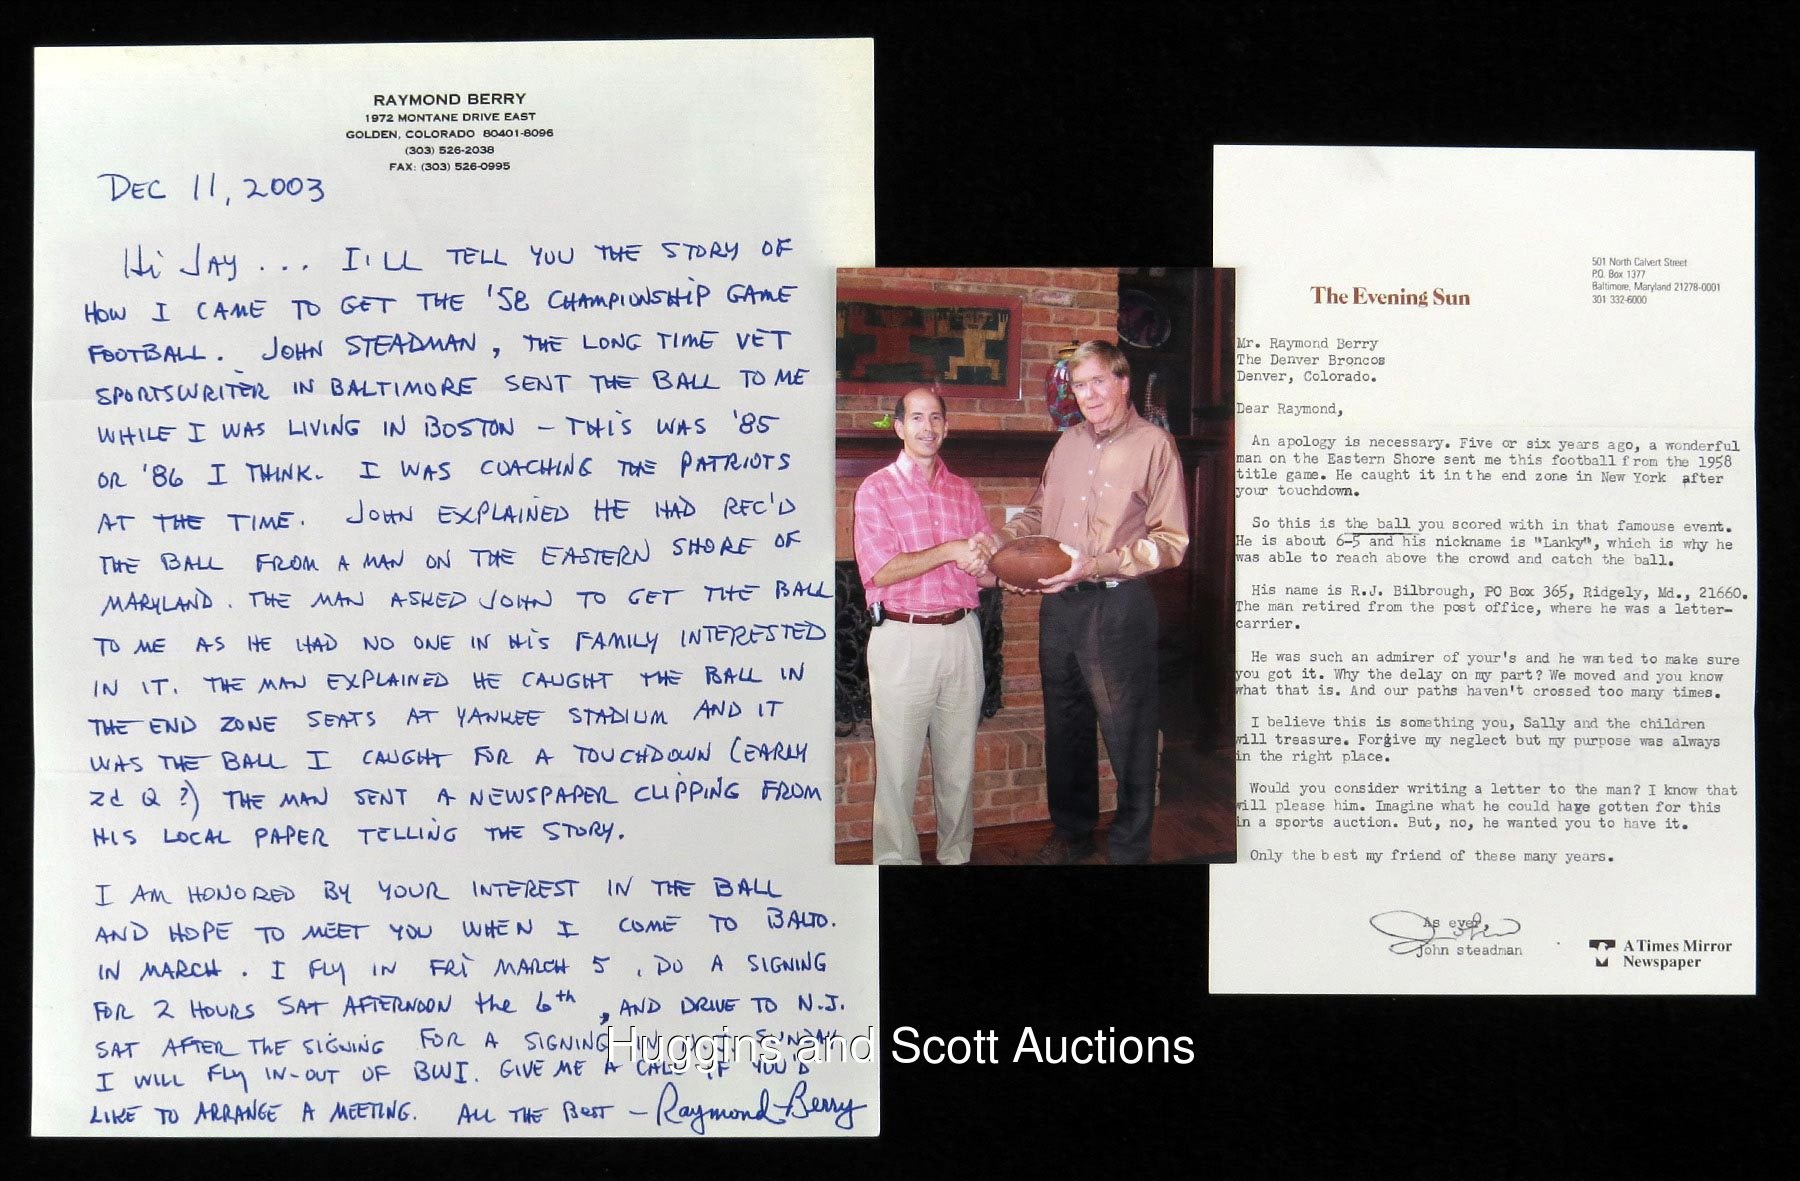 RAYMOND BERRY
1972 MONTANE DRIVE EAST
GOLDEN, COLORADO 80401-8096
(303) 526-2038
FAX: (303) 526-0995
DEC 11, 2003
Hi JAY . . . I'LL TELL YOU THE STORY OF
HOW I CAME TO GET THE '58 CHAMPIONSHIP GAME
FOOTBALL. JOHN STEADMAN, THE LONG TIME VET
SPORTSWRITER IN BALTIMORE SENT THE BALL TO ME
WHILE I WAS LIVING IN BOSTON – THIS WAS '85
OR '86 I THINK. I WAS COACHING THE PATRIOTS
AT THE TIME. JOHN EXPLAINED HE HAD REC'D
THE BALL FROM A MAN ON THE EASTERN SHORE OF
MARYLAND. THE MAN ASKED JOHN TO GET THE BALL
TO ME AS HE HAD NO ONE IN HIS FAMILY INTERESTED
IN IT. THE MAN EXPLAINED HE CAUGHT THE BALL IN
THE END ZONE SEATS AT YANKEE STADIUM AND IT
WAS THE BALL I CAUGHT FOR A TOUCHDOWN (EARLY
2d Q ?) THE MAN SENT A NEWSPAPER CLIPPING FROM
HIS LOCAL PAPER TELLING THE STORY.
I AM HONORED BY YOUR INTEREST IN THE BALL
AND HOPE TO MEET YOU WHEN I COME TO BALTO.
IN MARCH. I FLY IN FRI MARCH 5, DO A SIGNING
FOR 2 HOURS SAT AFTERNOON the 6th, AND DRIVE TO N.J.
SAT AFTER THE SIGNING FOR A SIGNING IN N.J. SUNDAY
I WILL FLY IN-OUT OF BWI. GIVE ME A CALL IF YOU'D
LIKE TO ARRANGE A MEETING. ALL THE BEST – Raymond Berry
The Evening Sun
501 North Calvert Street
P.O. Box 1377
Baltimore, Maryland 21278-0001
301 332-6000
Mr. Raymond Berry
The Denver Broncos
Denver, Colorado.
Dear Raymond,
An apology is necessary. Five or six years ago, a wonderful
man on the Eastern Shore sent me this football from the 1958
title game. He caught it in the end zone in New York after
your touchdown.
So this is the ball you scored with in that famouse event.
He is about 6-5 and his nickname is "Lanky", which is why he
was able to reach above the crowd and catch the ball.
His name is R.J. Bilbrough, PO Box 365, Ridgely, Md., 21660.
The man retired from the post office, where he was a letter-
carrier.
He was such an admirer of your's and he wanted to make sure
you got it. Why the delay on my part? We moved and you know
what that is. And our paths haven't crossed too many times.
I believe this is something you, Sally and the children
will treasure. Forgive my neglect but my purpose was always
in the right place.
Would you consider writing a letter to the man? I know that
will please him. Imagine what he could have gotten for this
in a sports auction. But, no, he wanted you to have it.
Only the best my friend of these many years.
As ever,
John
john steadman
A Times Mirror
Newspaper
Huggins and Scott Auctions